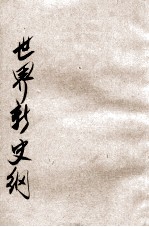 世界新史纲